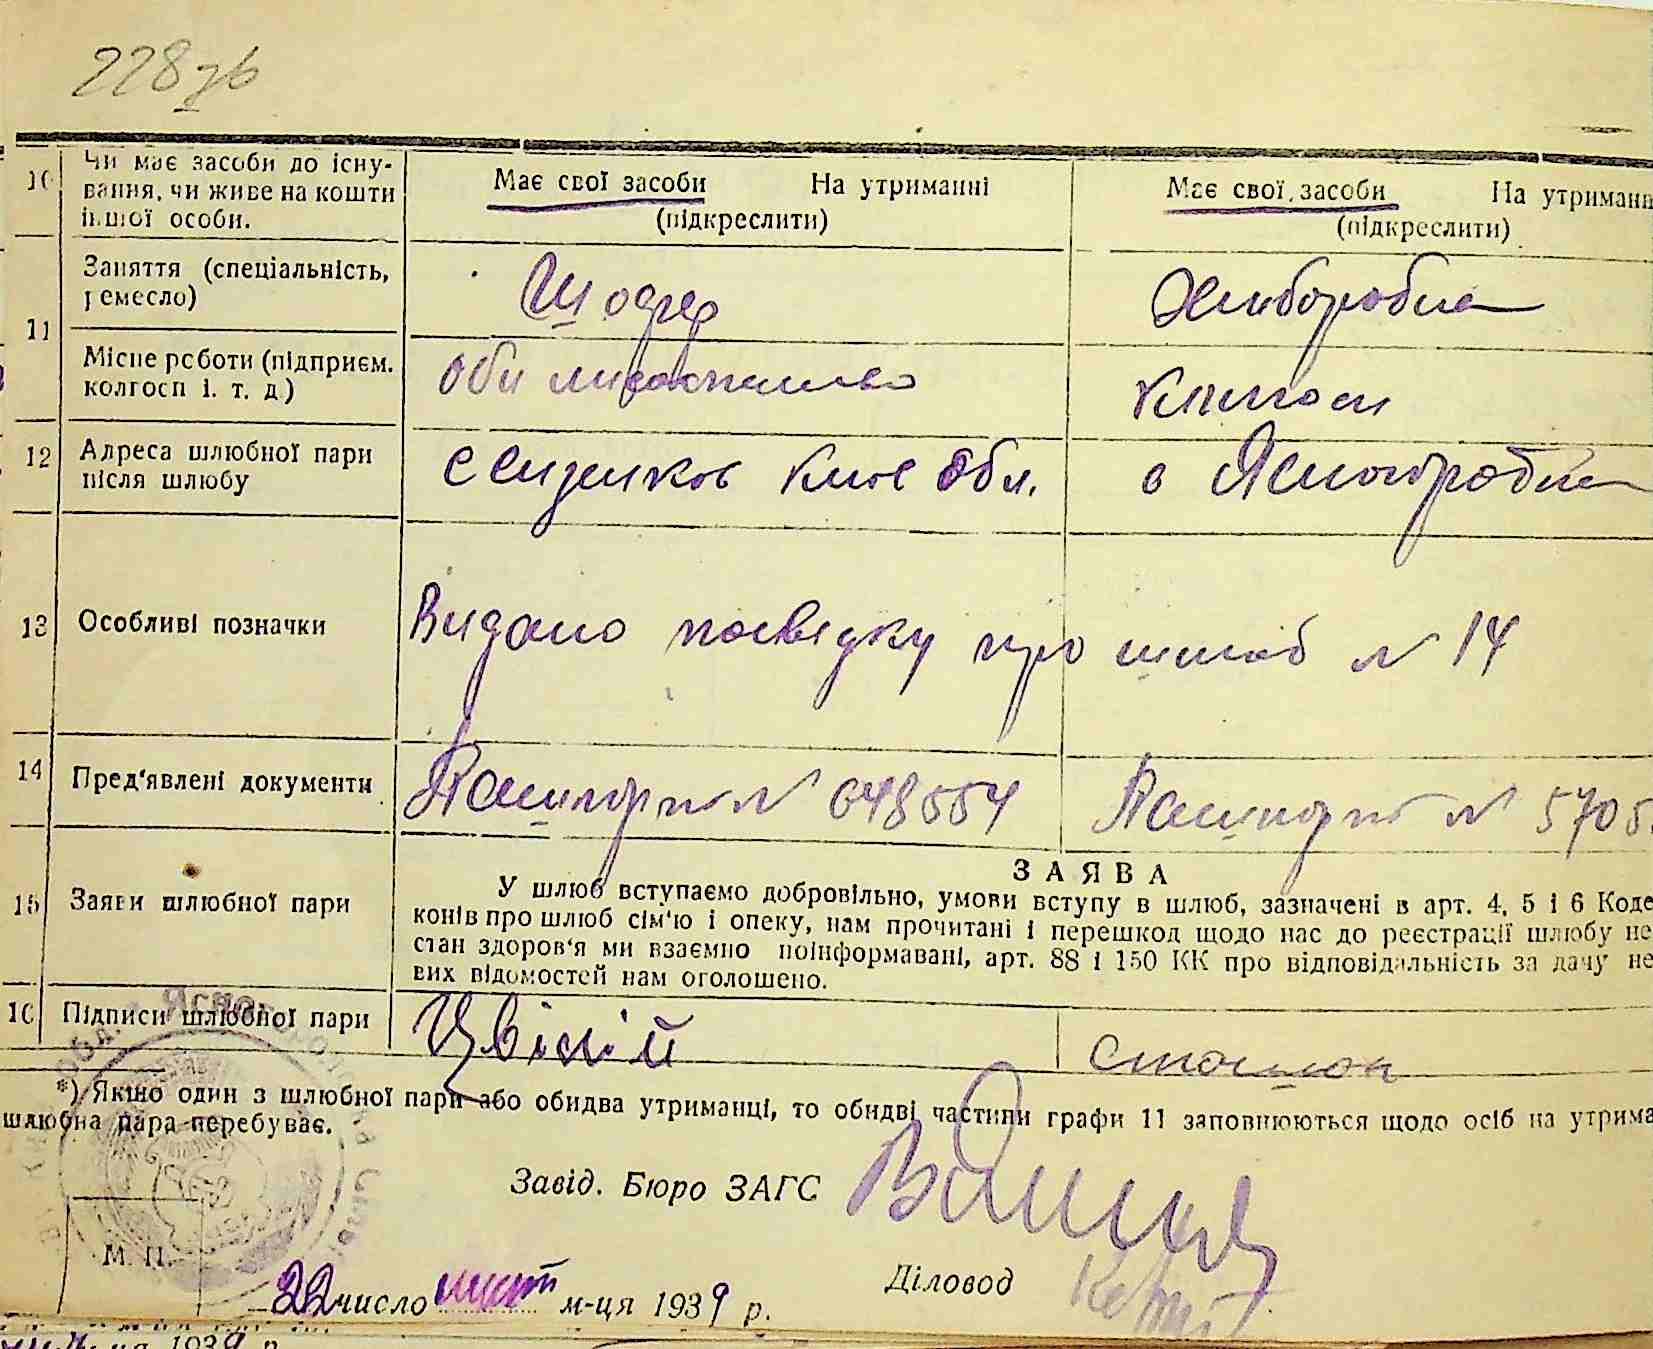 228 зв
10 Чи має засоби до існу-
вання, чи живе на кошти
іншої особи.
Має свої засоби На утриманні
(підкреслити)
Має свої засоби На утриманн
(підкреслити)
11 Заняття (спеціальність,
ремесло)
Шофер
Хлібороб
Місце роботи (підприєм.
колгосп і. т. д.)
Колгосп
12 Адреса шлюбної пари
після шлюбу
Київ Обл.
с Ясногородка
13 Особливі позначки
Видано посвідку про шлюб № 14
14 Пред'явлені документи
Пашпорт № 648554
Пашпорт № 5705
15 Заяви шлюбної пари
ЗАЯВА
У шлюб вступаємо добровільно, умови вступу в шлюб, зазначені в арт. 4, 5 і 6 Коде
конів про шлюб сім'ю і опеку, нам прочитані і перешкод щодо нас до реєстрації шлюбу не
стан здоров'я ми взаємно поінформавані, арт. 88 і 150 КК про відповідальність за дачу не
вих відомостей нам оголошено.
16 Підписи шлюбної пари
*) Якщо один з шлюбної пари або обидва утриманці, то обидві частини графи 11 заповнюються щодо осіб на утрима
шлюбна пара перебуває.
Завід. Бюро ЗАГС
М. П.
22 число лют м-ця 1939 р.
Діловод
ця 1939 р.